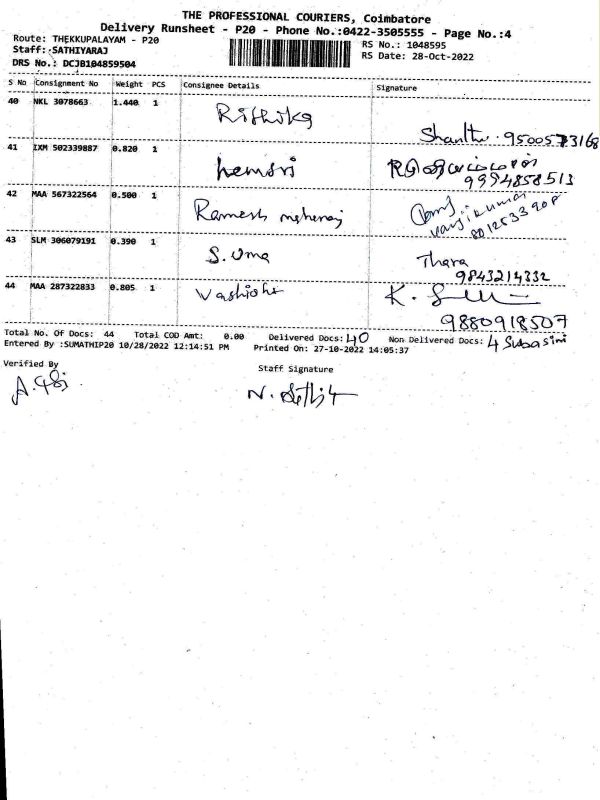 THE PROFESSIONAL COURIERS, Coimbatore
Delivery Runsheet - P20 - Phone No.:0422-3505555 - Page No.:4
Route: THEKKUPALAYAM - P20
RS No.: 1048595
Staff: SATHIYARAJ
RS Date: 28-Oct-2022
DRS No.: DCJB104859504
S No Consignment No Weight PCS Consignee Details Signature
40 NKL 3078663 1.440 1 Rithika
Shanthi. 9500573168
41 IXM 502339887 0.820 1 hemsri
9994858513
42 MAA 567322564 0.500 1 Ramesh
43 SLM 306079191 0.390 1 S. Uma Thara
9843214332
44 MAA 287322833 0.805 1 K.
9880918507
Total No. Of Docs: 44 Total COD Amt: 0.00 Delivered Docs: 40 Non Delivered Docs: 4 Subasini
Entered By :SUMATHIP20 10/28/2022 12:14:51 PM Printed On: 27-10-2022 14:05:37
Verified By
Staff Signature